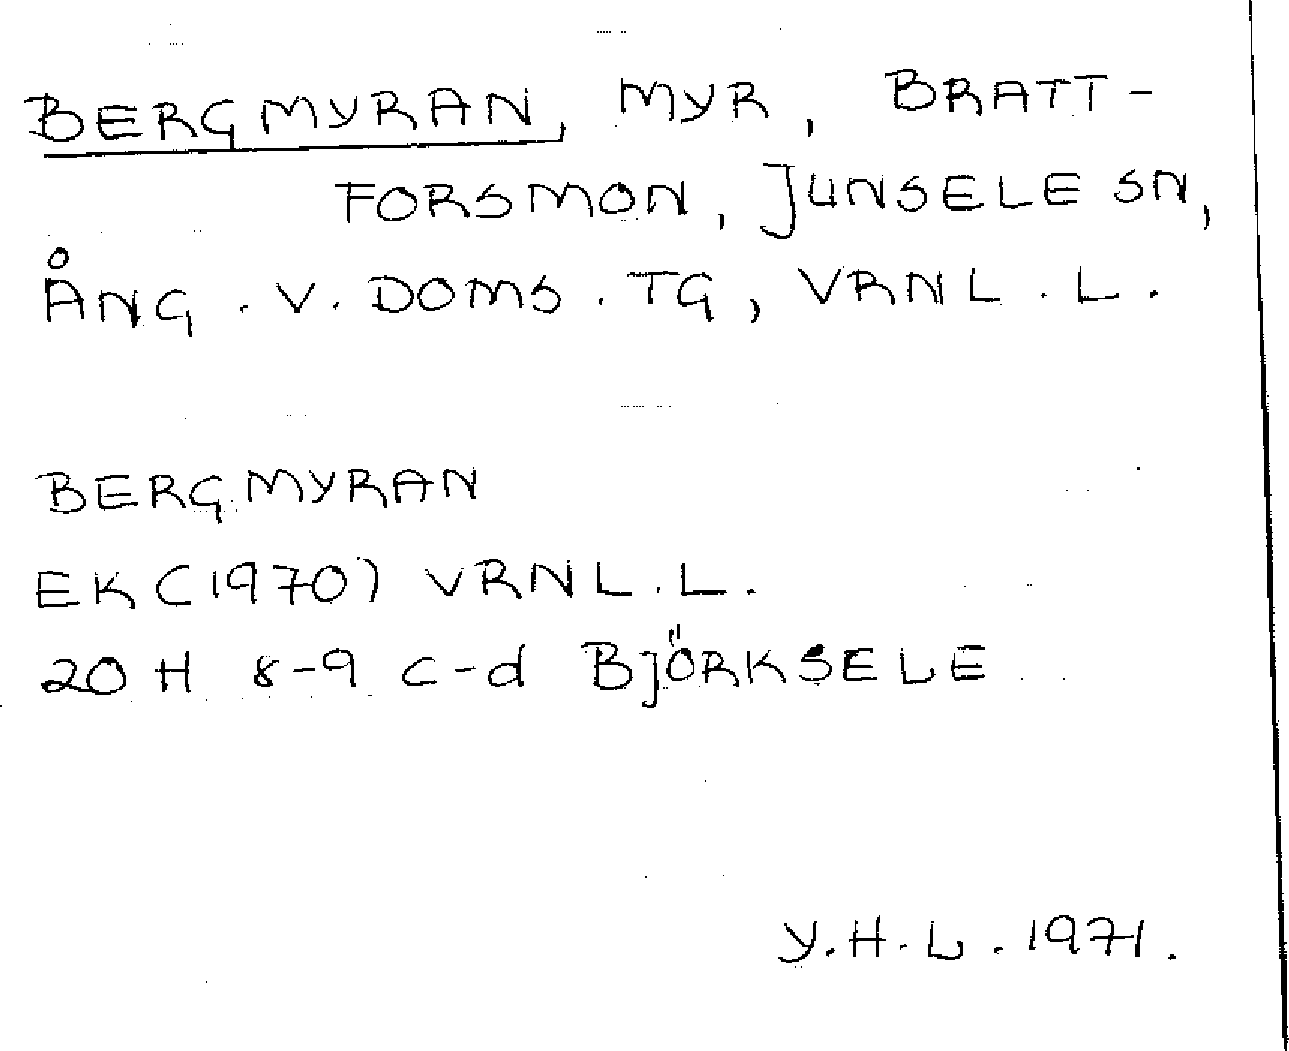 BERGMYRAN, MYR, BRATT-
FORSMON, JUNSELE SN,
ÅNG. V. DOMS. TG, VRNL. L.
BERGMYRAN
EK (1970) VRNL. L.
20 H 8-9 c-d BJÖRKSELE
Y.H.L. 1971.